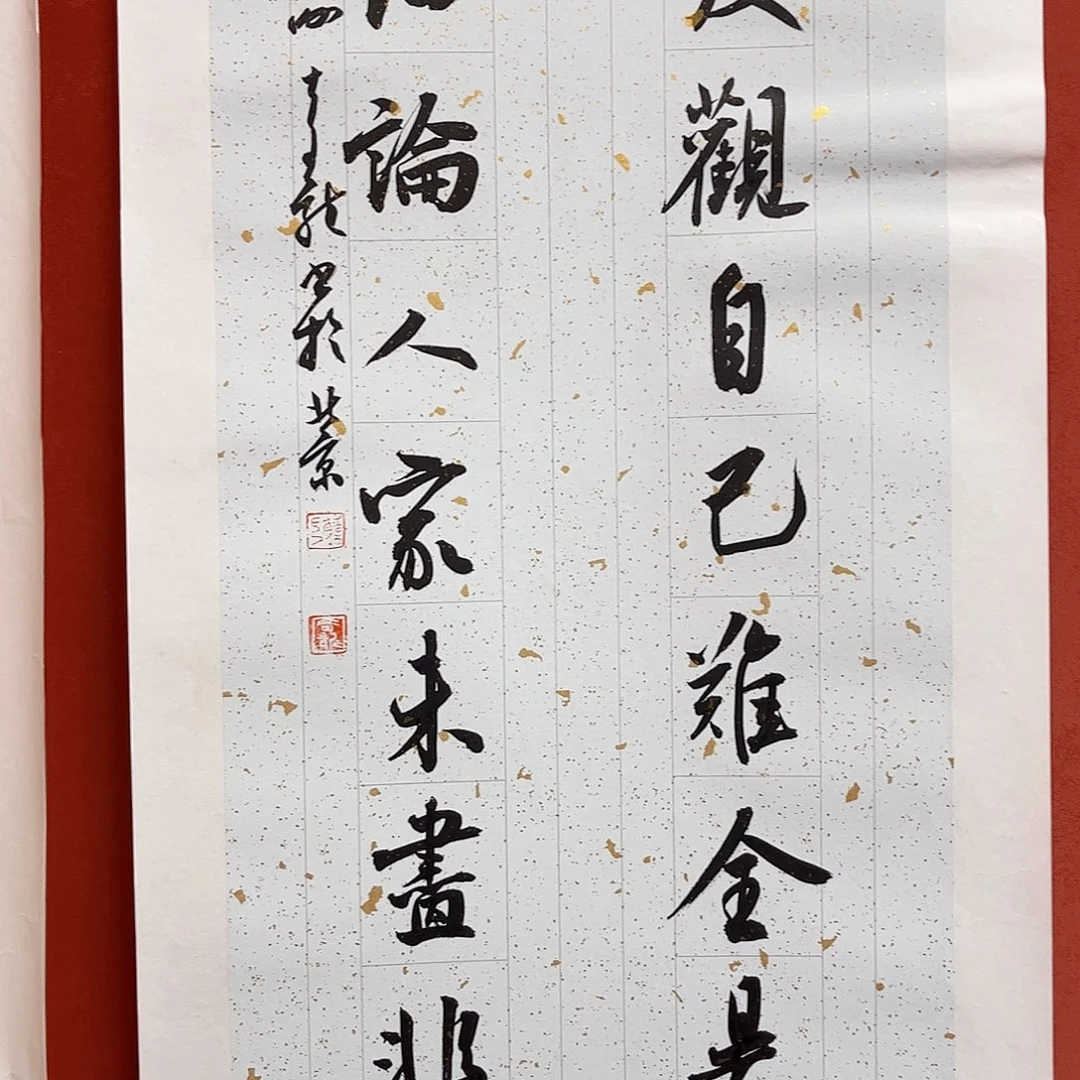 觀自己難全是
論人家未盡非
書於北京